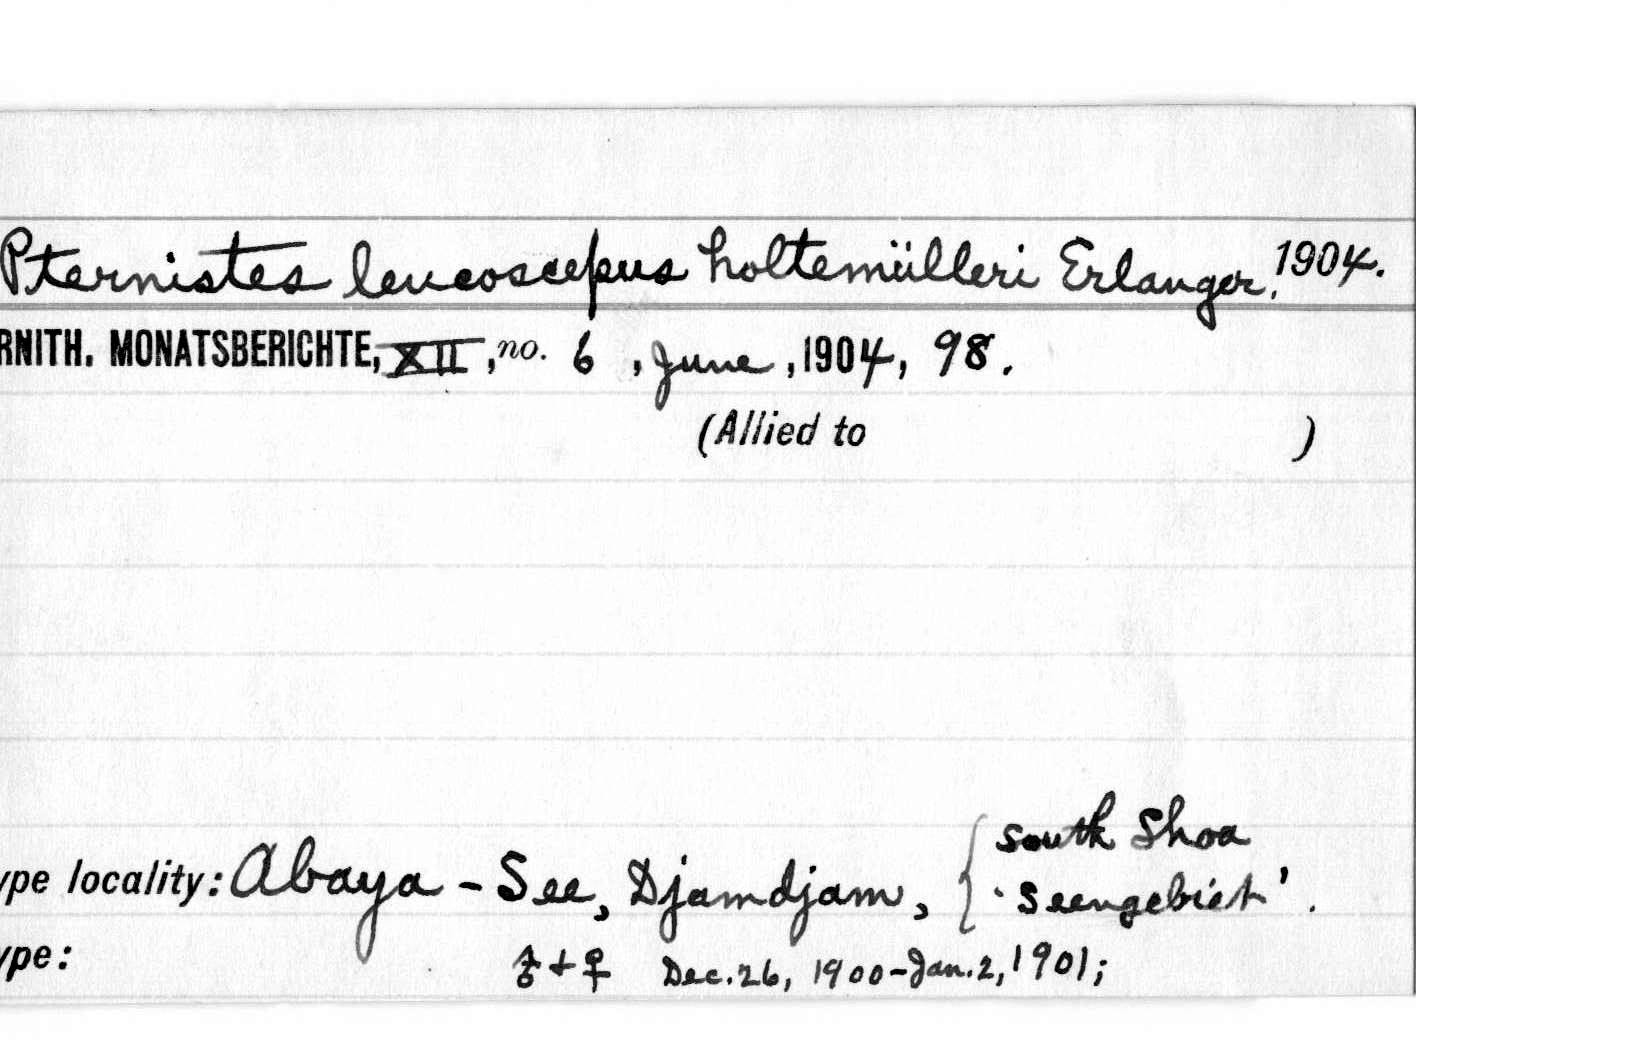 Pternistes leucoscepus holtemülleri Erlanger, 1904.
RNITH. MONATSBERICHTE, XII, no. 6, June, 1904, 98.
(Allied to )
south Shoa
ype locality: Abaya - See, Djamdjam, { 'Seengebiet'.
ype: ♂ + ♀ Dec. 26, 1900-Jan. 2, 1901;